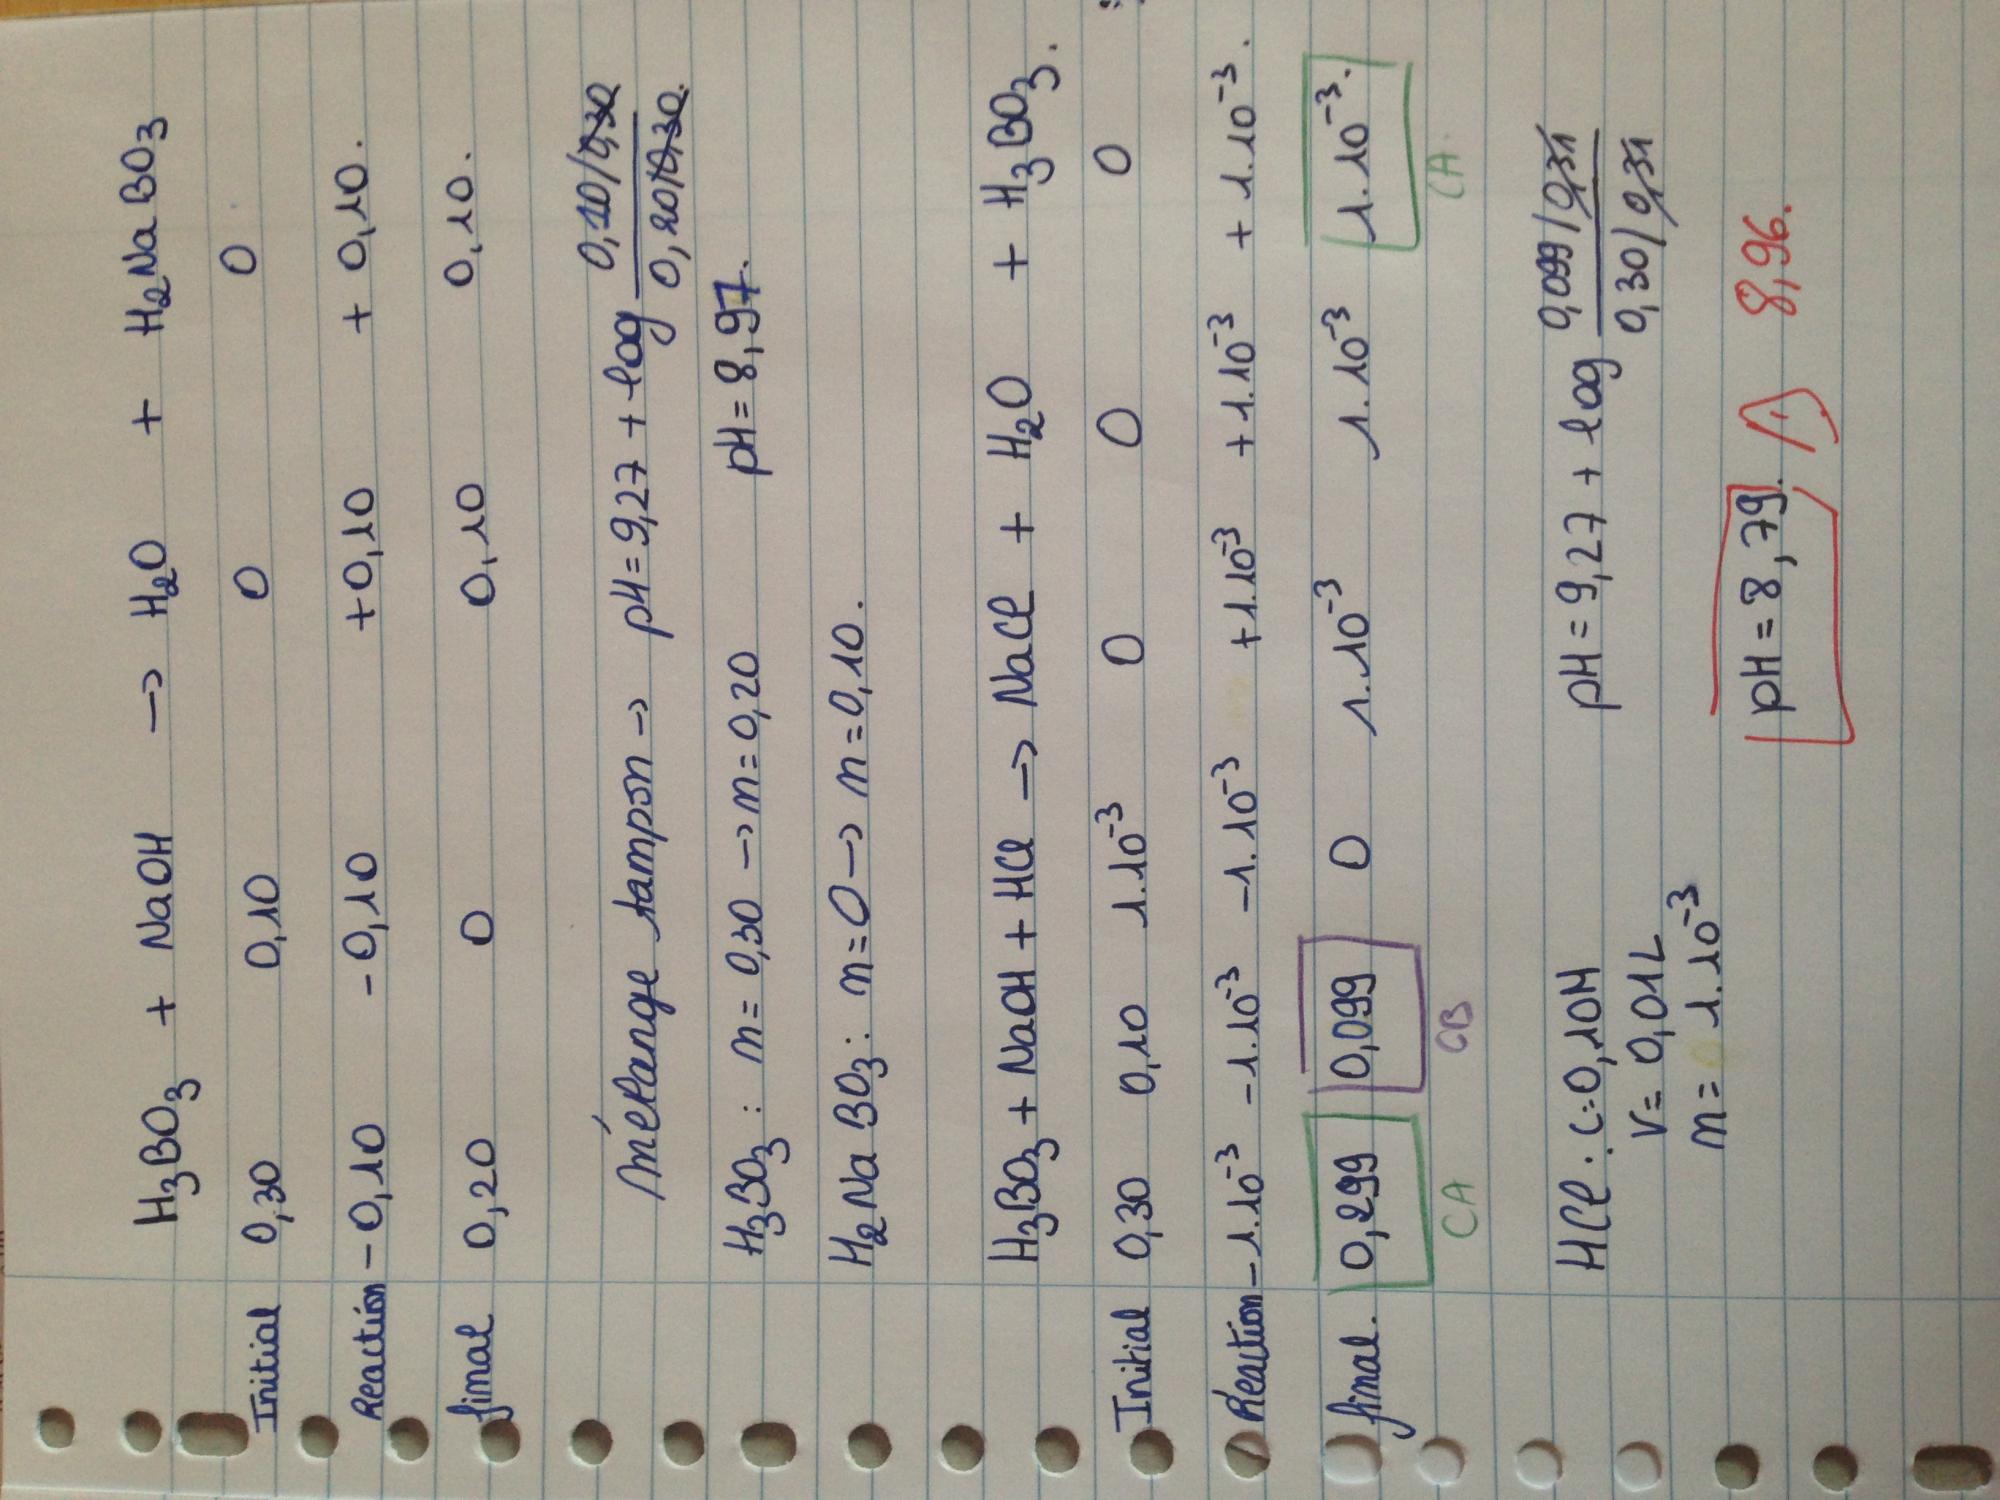 H₃BO₃ + NaOH → H₂O + H₂NaBO₃
Initial 0,30 0,10 0 0
Reaction -0,10 -0,10 +0,10 + 0,10.
final 0,20 0 0,10 0,10.
mélange tampon → pH = 9,27 + log (0,10/0,30)/(0,20/0,30)
H₃BO₃ : n = 0,30 → n = 0,20 pH = 8,97.
H₂NaBO₃ : n = 0 → n = 0,10.
H₃BO₃ + NaOH + HCl → NaCl + H₂O + H₃BO₃.
Initial 0,30 0,10 1.10⁻³ 0 0 0
Réaction -1.10⁻³ -1.10⁻³ -1.10⁻³ +1.10⁻³ +1.10⁻³ + 1.10⁻³.
final. 0,299 0,099 0 1.10⁻³ 1.10⁻³ 1.10⁻³.
CA CB CA
HCl : C=0,10M pH = 9,27 + log (0,099/0,31)/(0,30/0,31)
V= 0,01L
n= 1.10⁻³
pH = 8,79. /!\ 8,96.